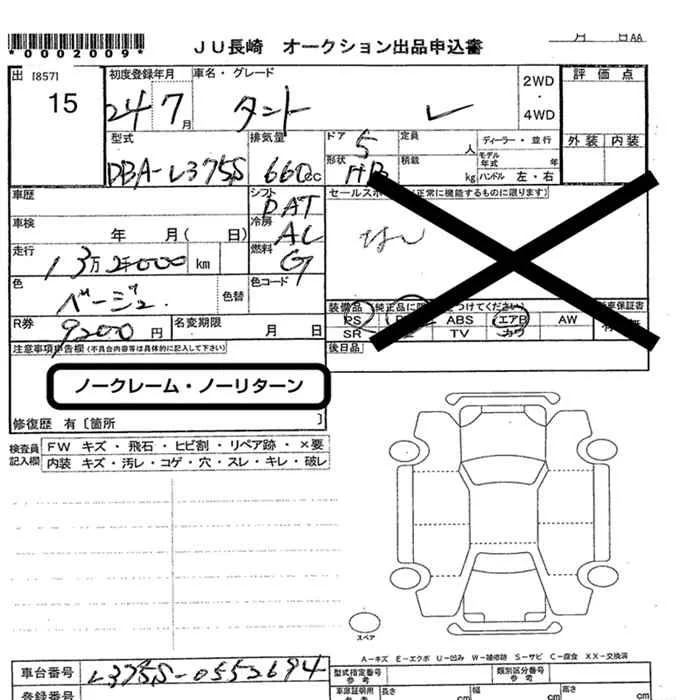 *0002009*
JU長崎 オークション出品申込書
月 日AA
出 [857] 初度登録年月 車名・グレード 2WD・4WD 評価点
15 24 7月 タント
型式 排気量 ドア 5 定員 人 ディーラー・並行 外装 内装
DBA-L375S 660cc 形状 HB 積載 kg モデル年式 年 ハンドル 左・右
車歴 シフト DAT セールスポ (正常に機能するものに限ります)
車検 年 月( 日) 冷房 AC なし
走行 13万2000km 燃料 G
色 ベージュ 色替 色コード
装備品 純正品に をつけてください 車保証書
R券 9200円 名変期限 月 日
PS ABS エアB AW
SR TV カワ
注意事項申告欄(不具合内容等は具体的に記入して下さい) 後日品
ノークレーム・ノーリターン
修復歴 有〔箇所 〕
検査員記入欄 FW キズ・飛石・ヒビ割・リペア跡・×要
内装 キズ・汚レ・コゲ・穴・スレ・キレ・破レ
スペア
A-キズ E-エクボ U-凹み W-補修跡 S-サビ C-腐食 XX-交換済
車台番号 L375S-0552694 型式指定番号 参考 類別区分番号 参考
登録番号 車庫証明用 参考 長さ cm 幅 cm 高さ cm